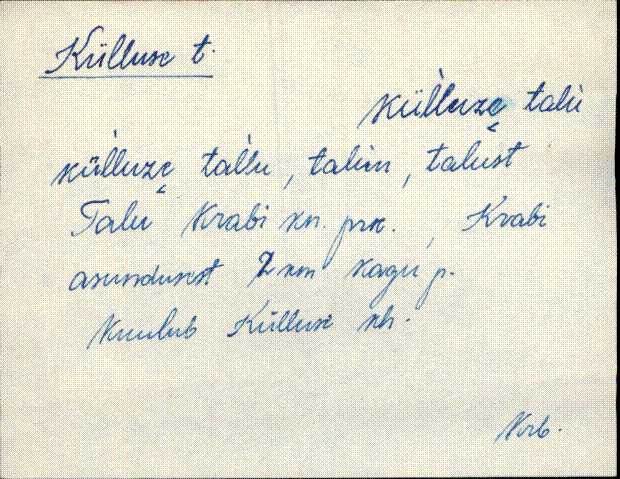 Külluse t.
kül̀luzę talù
kül̀luzę tal̀lu, taliin, talust
Talu Krabi kn. prk., Krabi
asundusest 2 km kagu p.
Kuulub Külluse kh.
Vrb.